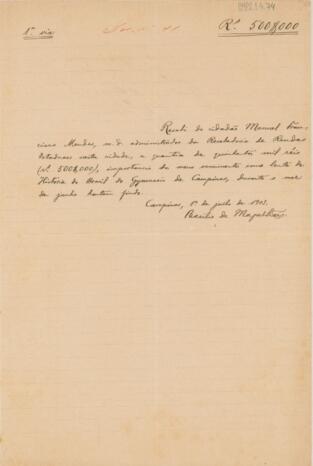 1ª via
Rs. 500$000
Recebi do cidadão Manoel Fran-
cisco Mendes, m. d. administrador da Recebedoria de Rendas
estadoaes nesta cidade, a quantia de quinhentos mil réis
(Rs. 500$000), importancia de meus vencimentos como lente de
Historia do Brasil do Gymnasio de Campinas, durante o mez
de junho hontem findo.
Campinas, 1º de julho de 1913.
Basilio de Magalhães